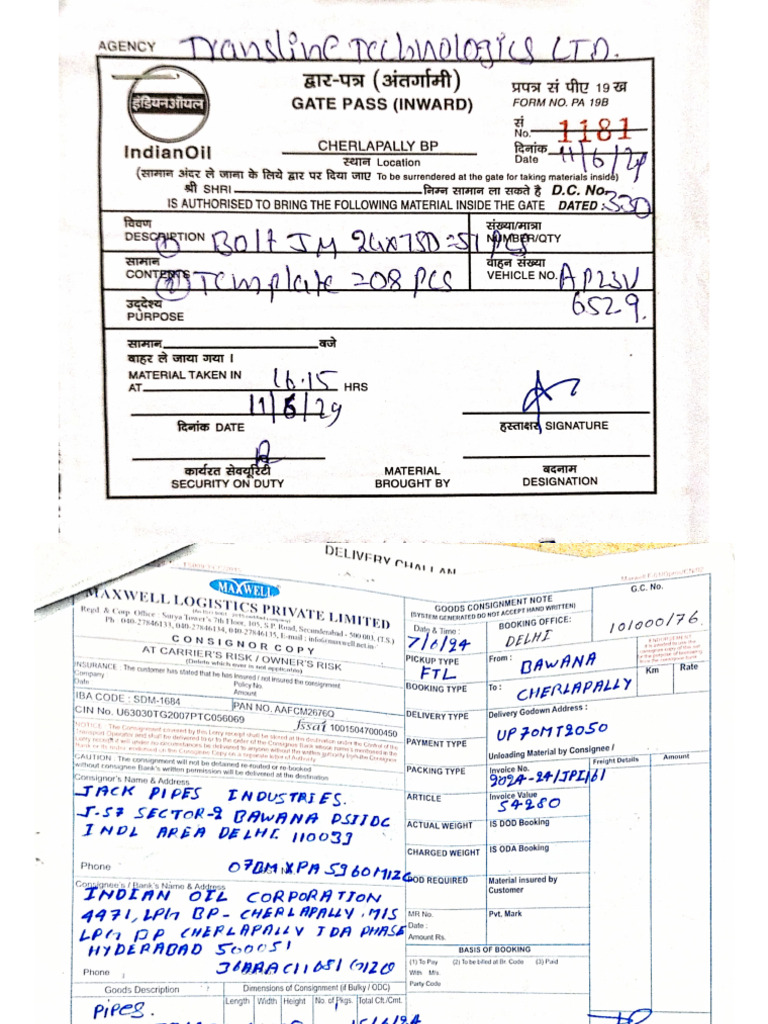 AGENCY Transline Technologies LTD.
द्वार-पत्र (अंतर्गामी)
GATE PASS (INWARD)
प्रपत्र सं पीए 19 ख
FORM NO. PA 19B
इंडियनऑयल
IndianOil
सं
No. 1181
CHERLAPALLY BP
स्थान Location
दिनांक
Date 11/6/24
(सामान अंदर ले जाना के लिये द्वार पर दिया जाए To be surrendered at the gate for taking materials inside)
श्री SHRI निम्न सामान ला सकते है D.C. No. 330
IS AUTHORISED TO BRING THE FOLLOWING MATERIAL INSIDE THE GATE DATED :
विवण
DESCRIPTION ① Bolt JM 24x750 = 51 PCS
संख्या/मात्रा
NUMBER/QTY
सामान
CONTENTS ② Template = 08 PCS
वाहन संख्या
VEHICLE NO. AP23V
6529.
उद्देश्य
PURPOSE
सामान वजे
बाहर ले जाया गया ।
MATERIAL TAKEN IN
AT 16.15 HRS
11/6/24
दिनांक DATE
हस्ताक्षर SIGNATURE
कार्यरत सेक्यूरिटी
SECURITY ON DUTY
MATERIAL
BROUGHT BY
बदनाम
DESIGNATION
DELIVERY CHALLAN
MAXWELL
MAXWELL LOGISTICS PRIVATE LIMITED
Regd. & Corp. Office : Surya Tower's 7th Floor, 105, S.P. Road, Secunderabad - 500 003. (T.S.)
Ph 040-27846133, 040-27846134, 040-27846135, E-mail : info@maxwell.net.in
CONSIGNOR COPY
AT CARRIER'S RISK / OWNER'S RISK
(Delete which ever is not applicable)
INSURANCE : The customer has stated that he has Insured / not Insured the consignment
Company Policy No.
Date Amount
IBA CODE : SDM-1684 PAN NO. AAFCM2676Q
CIN No. U63030TG2007PTC056069
fssai 10015047000450
CAUTION : The consignment will not be detained re-routed or re-booked
without consignee Bank's written permission will be delivered at the destination
Consignor's Name & Address
JACK PIPES INDUSTRIES.
J-57 SECTOR-2 BAWANA DSIIDC
INDL AREA DELHI 110039
Phone 07BMXPA5960M1ZG
Consignee's / Bank's Name & Address
INDIAN OIL CORPORATION
4471, LPG BP- CHERLAPALLY. M/S
LPG BP CHERLAPALLY IDA PHASE
HYDERABAD 500051
Phone 36AAACI1681G1Z0
Goods Description
Dimensions of Consignment (if Bulky / ODC)
Length Width Height No. of Pkgs. Total Cft./Cmt.
PIPES.
15/6/24
GOODS CONSIGNMENT NOTE
(SYSTEM GENERATED DO NOT ACCEPT HAND WRITTEN)
G.C. No.
101000/76.
Date & Time :
7/6/24
BOOKING OFFICE:
DELHI
PICKUP TYPE
FTL
From : BAWANA
Km Rate
BOOKING TYPE
To : CHERLAPALLY
DELIVERY TYPE
Delivery Godown Address :
UP70MT2050
PAYMENT TYPE
Unloading Material by Consignee /
PACKING TYPE
Invoice No.
2024-24/JPI/61
Freight Details Amount
ARTICLE
Invoice Value
54280
ACTUAL WEIGHT IS DOD Booking
CHARGED WEIGHT IS ODA Booking
DOD REQUIRED Material insured by
Customer
MR No. Pvt. Mark
Date :
Amount Rs.
BASIS OF BOOKING
(1) To Pay (2) To be billed at Br. Code (3) Paid
With M/s.
Party Code